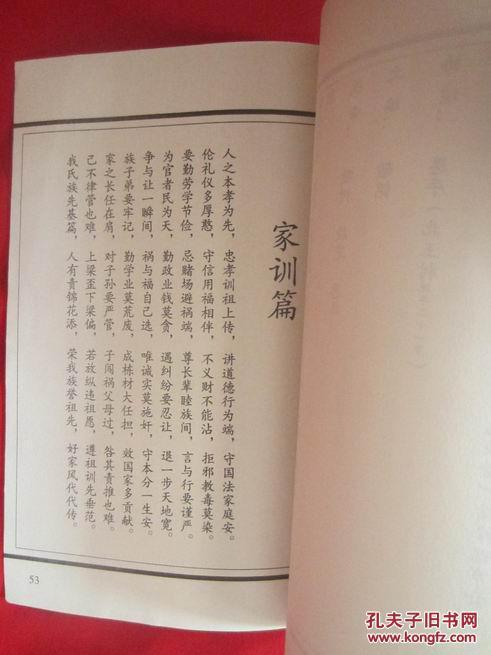 家训篇
人之本孝为先，忠孝训祖上传，讲道德行为端，守国法家庭安。
伦礼仪多厚憨，守信用福相伴，不义财不能沾，拒邪教毒莫染。
要勤劳学节俭，忌赌场避祸端，尊长辈睦族间，言与行要谨严。
为官者民为天，勤政业钱莫贪，遇纠纷要忍让，退一步天地宽。
争与让一瞬间，祸与福自己选，唯诚实莫施奸，守本分一生安。
族子弟要牢记，勤学业莫荒废，成栋材大任担，效国家多贡献。
家之长任在肩，对子孙要严管，子闯祸父母过，咎其责推也难。
己不律管也难，上梁歪下梁偏，若放纵违祖愿，遵祖训先垂范。
我氏族先基篇，人有青锦花添，荣我族誉祖先，好家风代代传。
53
孔夫子旧书网
www.kongfz.com